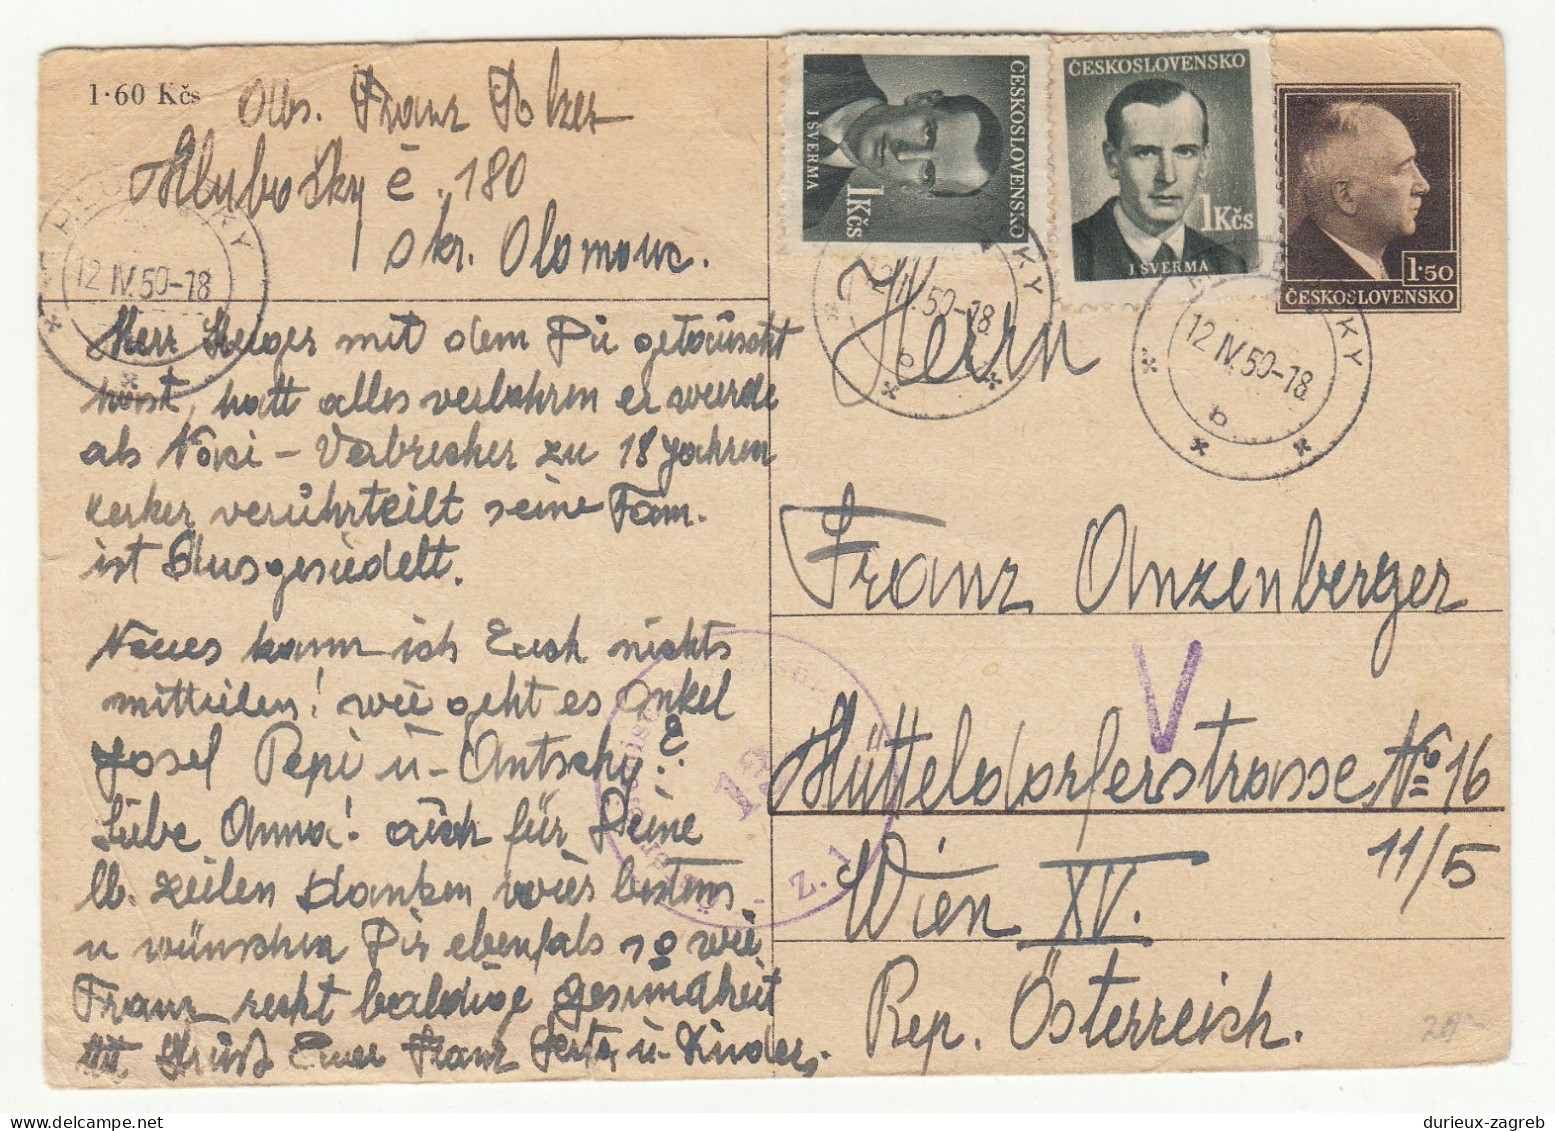 1·60 Kčs
Obs. Franz
Hlubočky č. 180
okr. Olomouc.
HLUBOČKY
12 IV. 50-18
Herr mit dem Du getäuscht
hast, hatt alles verlohren er wurde
als Nazi - Verbrecher zu 18 Jahren
kerker verührteilt seine Fam.
ist Ausgesiedelt.
Neues kann ich Euch nichts
mitteilen! wie geht es Onkel
Josef Pepi u- Antschy?
Liebe Anna! auch für Deine
lb. zeilen danken wir bestens
u wünschen Dir ebenfals so wie
Franz recht baldige gesundheit
mit Gruß Euer Franz u- Kinder.
ČESKOSLOVENSKO
1Kčs
J ŠVERMA
ČESKOSLOVENSKO
1Kčs
J ŠVERMA
1·50
ČESKOSLOVENSKO
12 IV. 50-18
b
12 IV. 50-18
b
Herrn
Franz Anzenberger
V
Hütteldorferstrasse No 16
11/5
Wien XV.
Rep. Österreich.
Z. 1
20-
durieux-zagreb